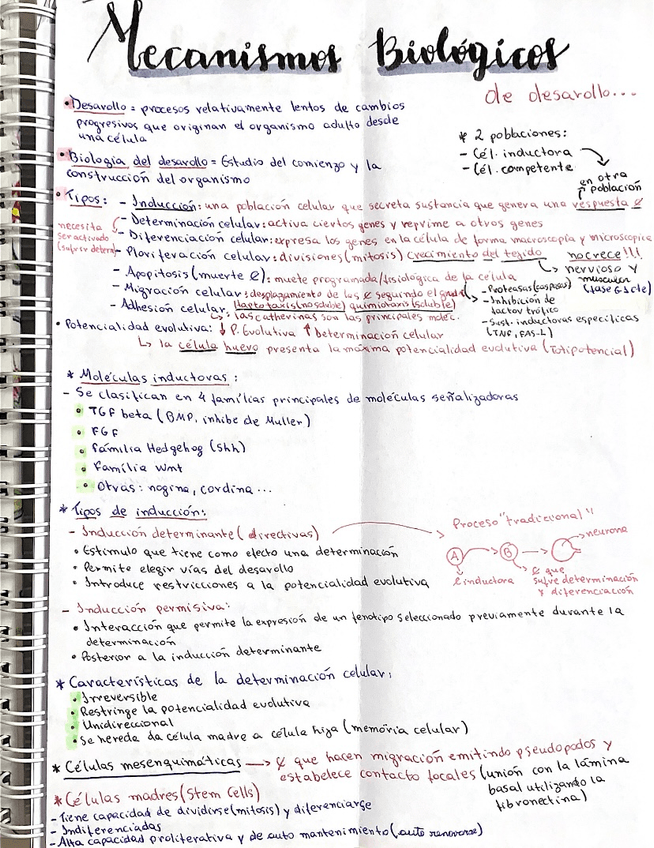 Mecanismos Biológicos
de desarollo...
• Desarollo = procesos relativamente lentos de cambios
progresivos que originan el organismo adulto desde
una célula
• Biología del desarollo = Estudio del comienzo y la
construcción del organismo
* 2 poblaciones:
- Cél. inductora
- Cél. competente
en otra
población
• Tipos: - Inducción: una población celular que secreta sustancia que genera una respuesta
necesita
ser activado
(sufrir determ)
- Determinación celular: activa ciertos genes y reprime a otros genes
- Diferenciación celular: expresa los genes en la célula de forma macroscopía y microscopica
- Ploriferación celular: divisiones (mitosis) crecimiento del tejido
no crece!!!
nervioso y
muscular
(fase G1 S cle)
- Apopitosis (muerte): muete programada/fisiológica de la célula
- Migración celular: desplazamiento de las seguindo el grad
haptotaxis (no soluble) quimiotaxis (soluble)
- Adhesión celular: las catherinas son las principales moléc.
- Proteasas (caspasas)
- Inhibición de
factor trófico
- Sust. inductoras específicas
(TNF, FAS-L)
• Potencialidad evolutiva: ↓ P. Evolutiva ↑ Determinación celular
la célula huevo presenta la máxima potencialidad evolutiva (Totipotencial)
* Moléculas inductoras:
- Se clasifican en 4 famílias principales de moléculas señalizadoras
• TGF beta (BMP, inhibe de Muller)
• FGF
• Família Hedgehog (Shh)
• Família Wnt
• Otras: nogina, cordina ...
* Tipos de inducción:
- Inducción determinante (directivas)
• Estímulo que tiene como efecto una determinación
• Permite elegir vías del desarollo
• Introduce restricciones a la potencialidad evolutiva
Proceso "tradicional"
A B neurona
inductora
que
sufre determinación
y diferenciación
- Inducción permisiva:
• Interacción que permite la expresión de un fenotipo seleccionado previamente durante la
determinación
• Posterior a la inducción determinante
* Características de la determinación celular:
• Irreversible
• Restringe la potencialidad evolutiva
• Unidireccional
• Se hereda da célula madre a célula hija (memória celular)
* Células mesenquimáticas → que hacen migración emitindo pseudopodos y
estabelece contacto focales (unión con la lámina
basal utilizando la
fibronectina)
* Células madres (Stem Cells)
- Tiene capacidad de dividirse (mitosis) y diferenciarse
- Indiferenciadas
- Alta capacidad proliferativa y de auto mantenimiento (auto renovarse)